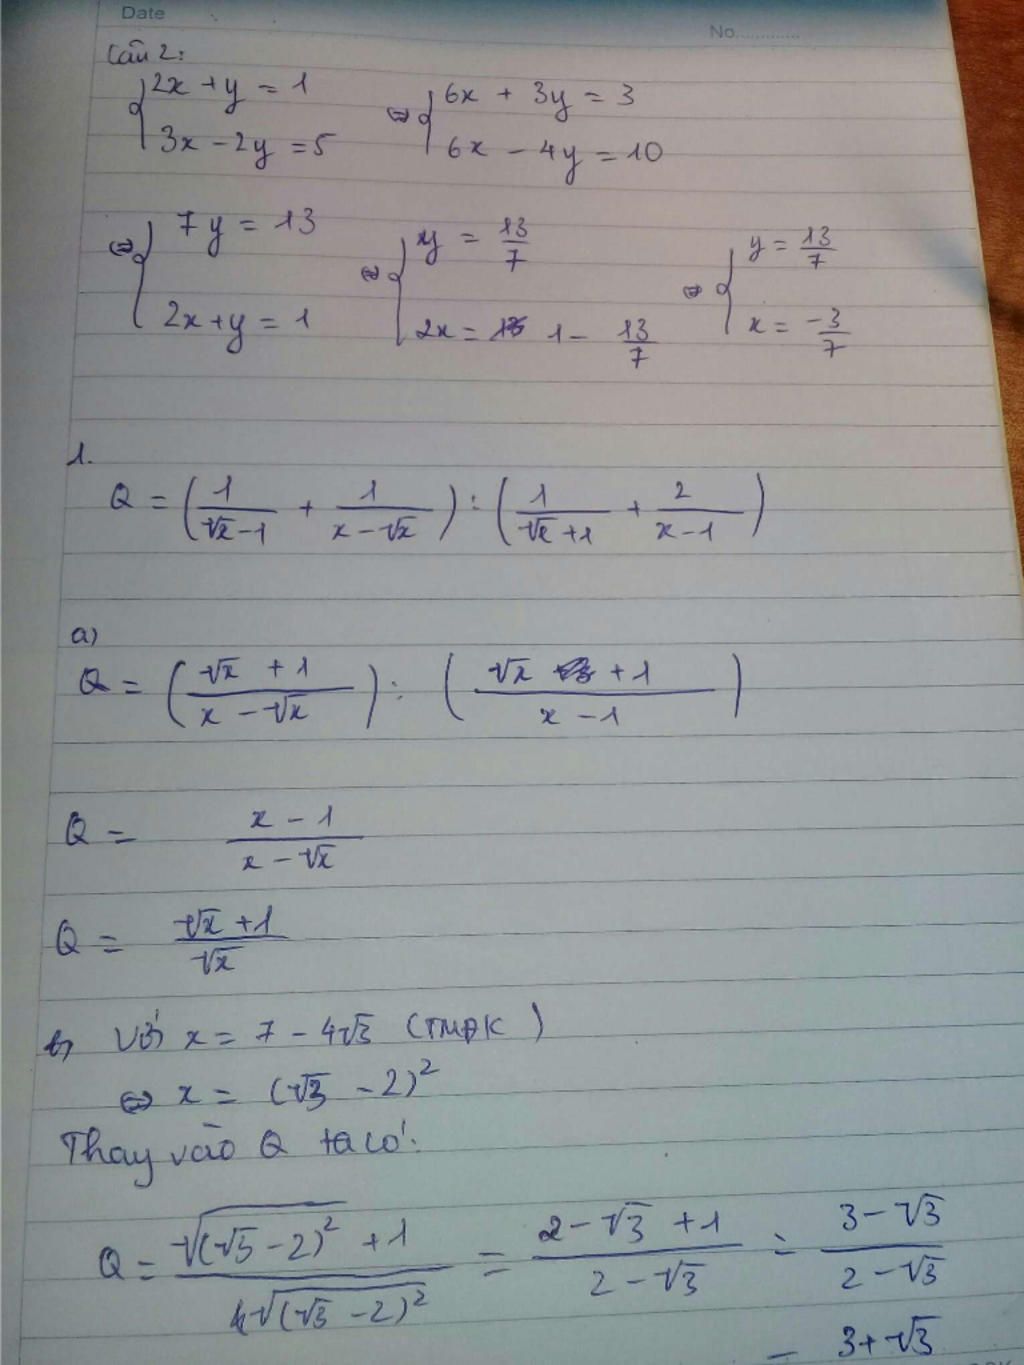 Date
No.............
Câu 2:
{ 2x + y = 1 ⇔ { 6x + 3y = 3
3x - 2y = 5 6x - 4y = 10
⇔ { 7y = 13 ⇔ { y = 13/7 ⇔ { y = 13/7
2x + y = 1 2x = 1 - 13/7 x = -3/7
1.
Q = (1/(√x - 1) + 1/(x - √x)) : (1/(√x + 1) + 2/(x - 1))
a)
Q = ((√x + 1)/(x - √x)) : ((√x + 1)/(x - 1))
Q = (x - 1)/(x - √x)
Q = (√x + 1)/√x
b) Với x = 7 - 4√3 (TMĐK)
⇔ x = (√3 - 2)²
Thay vào Q ta có:
Q = (√(√3 - 2)² + 1)/√(√3 - 2)² = (2 - √3 + 1)/(2 - √3) = (3 - √3)/(2 - √3)
= 3 + √3